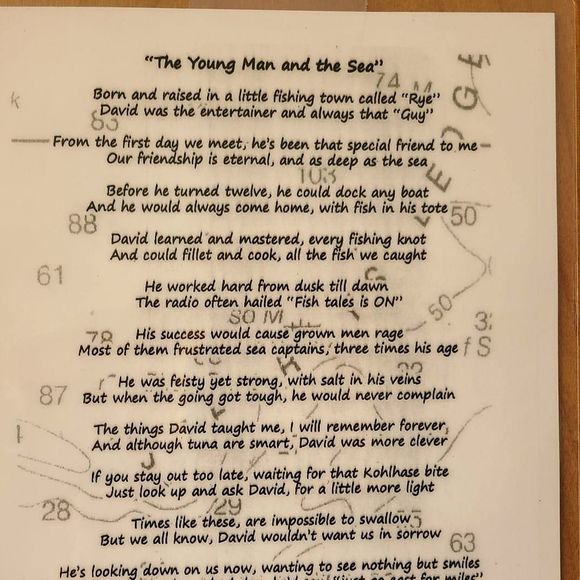 "The Young Man and the Sea"
Born and raised in a little fishing town called "Rye"
David was the entertainer and always that "Guy"
From the first day we meet, he's been that special friend to me
Our friendship is eternal, and as deep as the sea
Before he turned twelve, he could dock any boat
And he would always come home, with fish in his tote
David learned and mastered, every fishing knot
And could fillet and cook, all the fish we caught
He worked hard from dusk till dawn
The radio often hailed "Fish tales is ON"
His success would cause grown men rage
Most of them frustrated sea captains, three times his age
He was feisty yet strong, with salt in his veins
But when the going got tough, he would never complain
The things David taught me, I will remember forever,
And although tuna are smart, David was more clever
If you stay out too late, waiting for that Kohlhase bite
Just look up and ask David, for a little more light
Times like these, are impossible to swallow
But we all know, David wouldn't want us in sorrow
He's looking down on us now, wanting to see nothing but smiles
74 M
83
103
88
50
61
50
SO M
78
f S
87
28
29
63